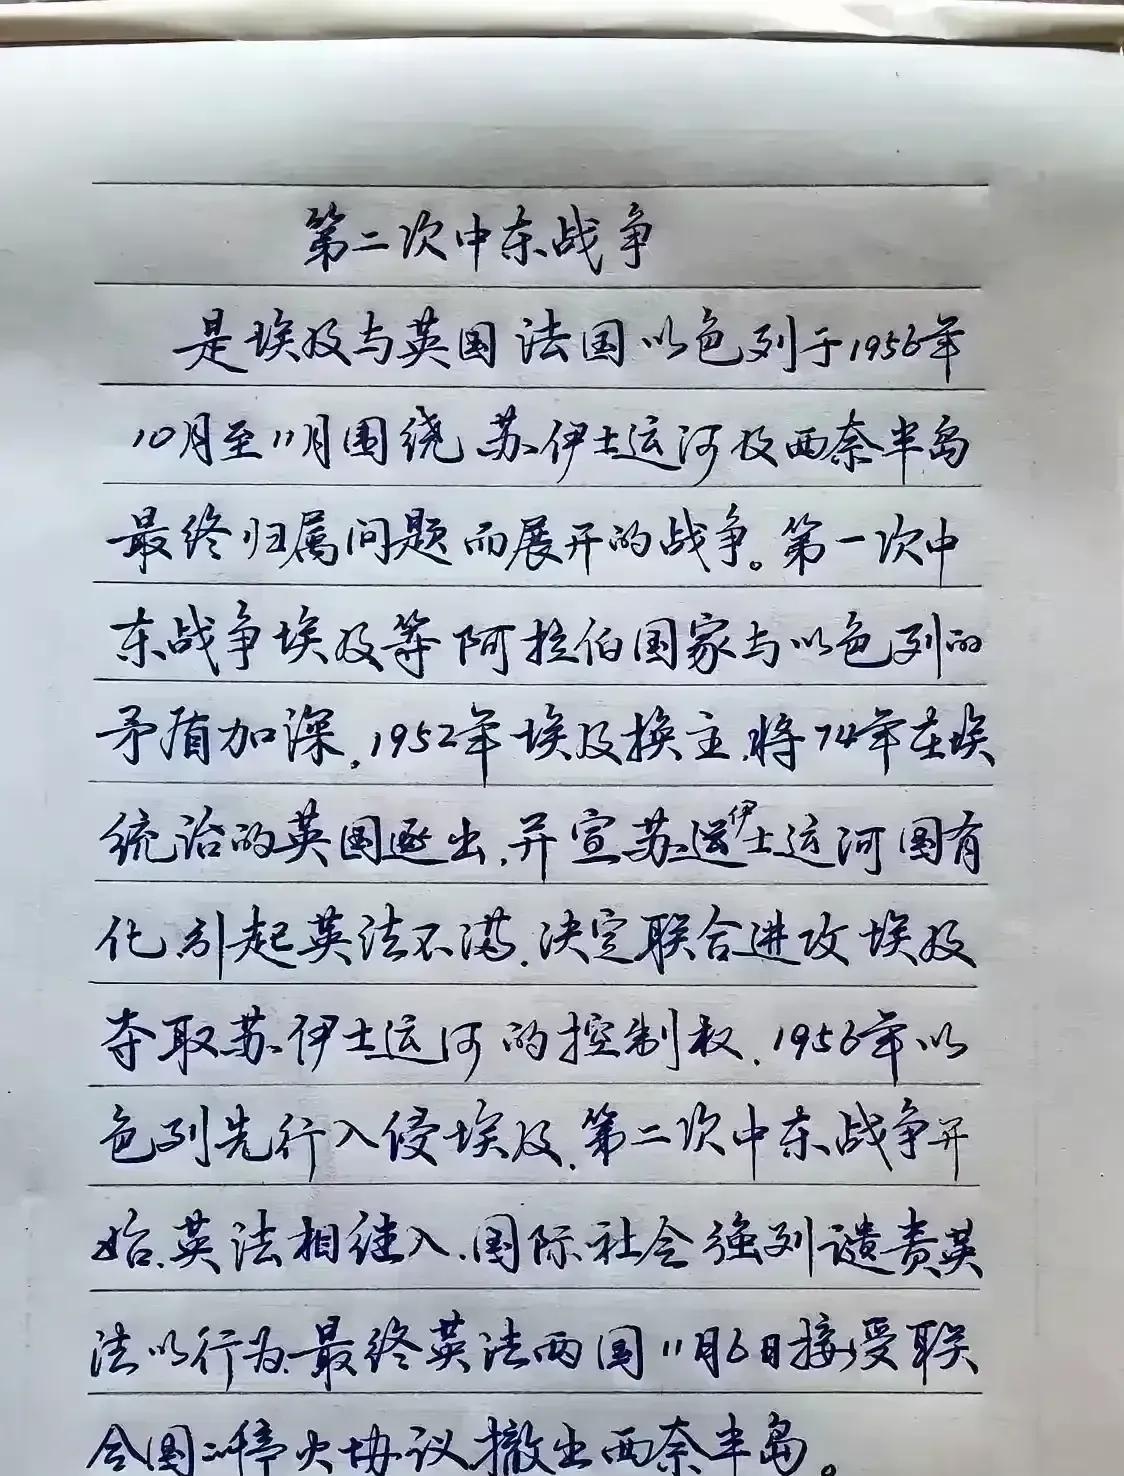 第二次中东战争
是埃及与英国 法国 以色列于1956年
10月至11月围绕 苏伊士运河及西奈半岛
最终归属问题而展开的战争。第一次中
东战争埃及等阿拉伯国家与以色列的
矛盾加深,1952年埃及换主,将74年在埃
统治的英国逐出,并宣苏运伊士运河国有
化,引起英法不满,决定联合进攻埃及
夺取苏伊士运河的控制权,1956年以
色列先行入侵埃及,第二次中东战争开
始,英法相继入,国际社会强列谴责英
法以行为,最终英法两国11月6日接受联
合国停火协议,撤出西奈半岛。